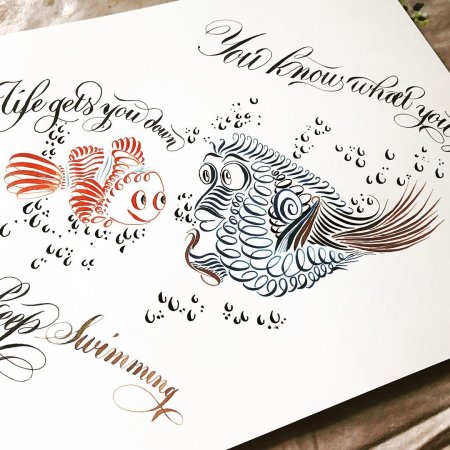 Life gets you down
You know what you
Keep Swimming